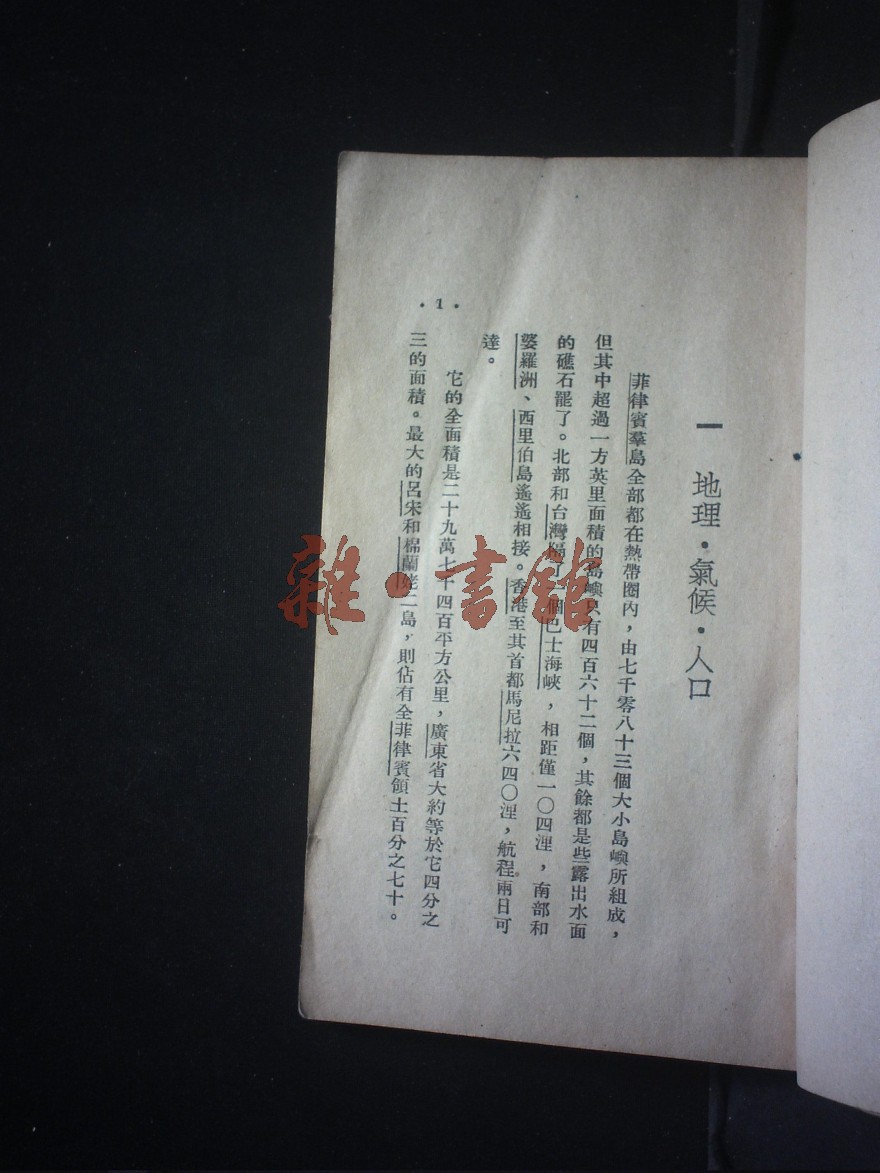 一 地理・氣候・人口
菲律賓羣島全部都在熱帶圈內，由七千零八十三個大小島嶼所組成，
但其中超過一方英里面積的島嶼只有四百六十二個，其餘都是些露出水面
的礁石罷了。北部和台灣隔了一個巴士海峽，相距僅一〇四浬，南部和
婆羅洲、西里伯島遙遙相接。香港至其首都馬尼拉六四〇浬，航程兩日可
達。
它的全面積是二十九萬七千四百平方公里，廣東省大約等於它四分之
三的面積。最大的呂宋和棉蘭姥二島，則佔有全菲律賓領土百分之七十。
・1・
雜・書館